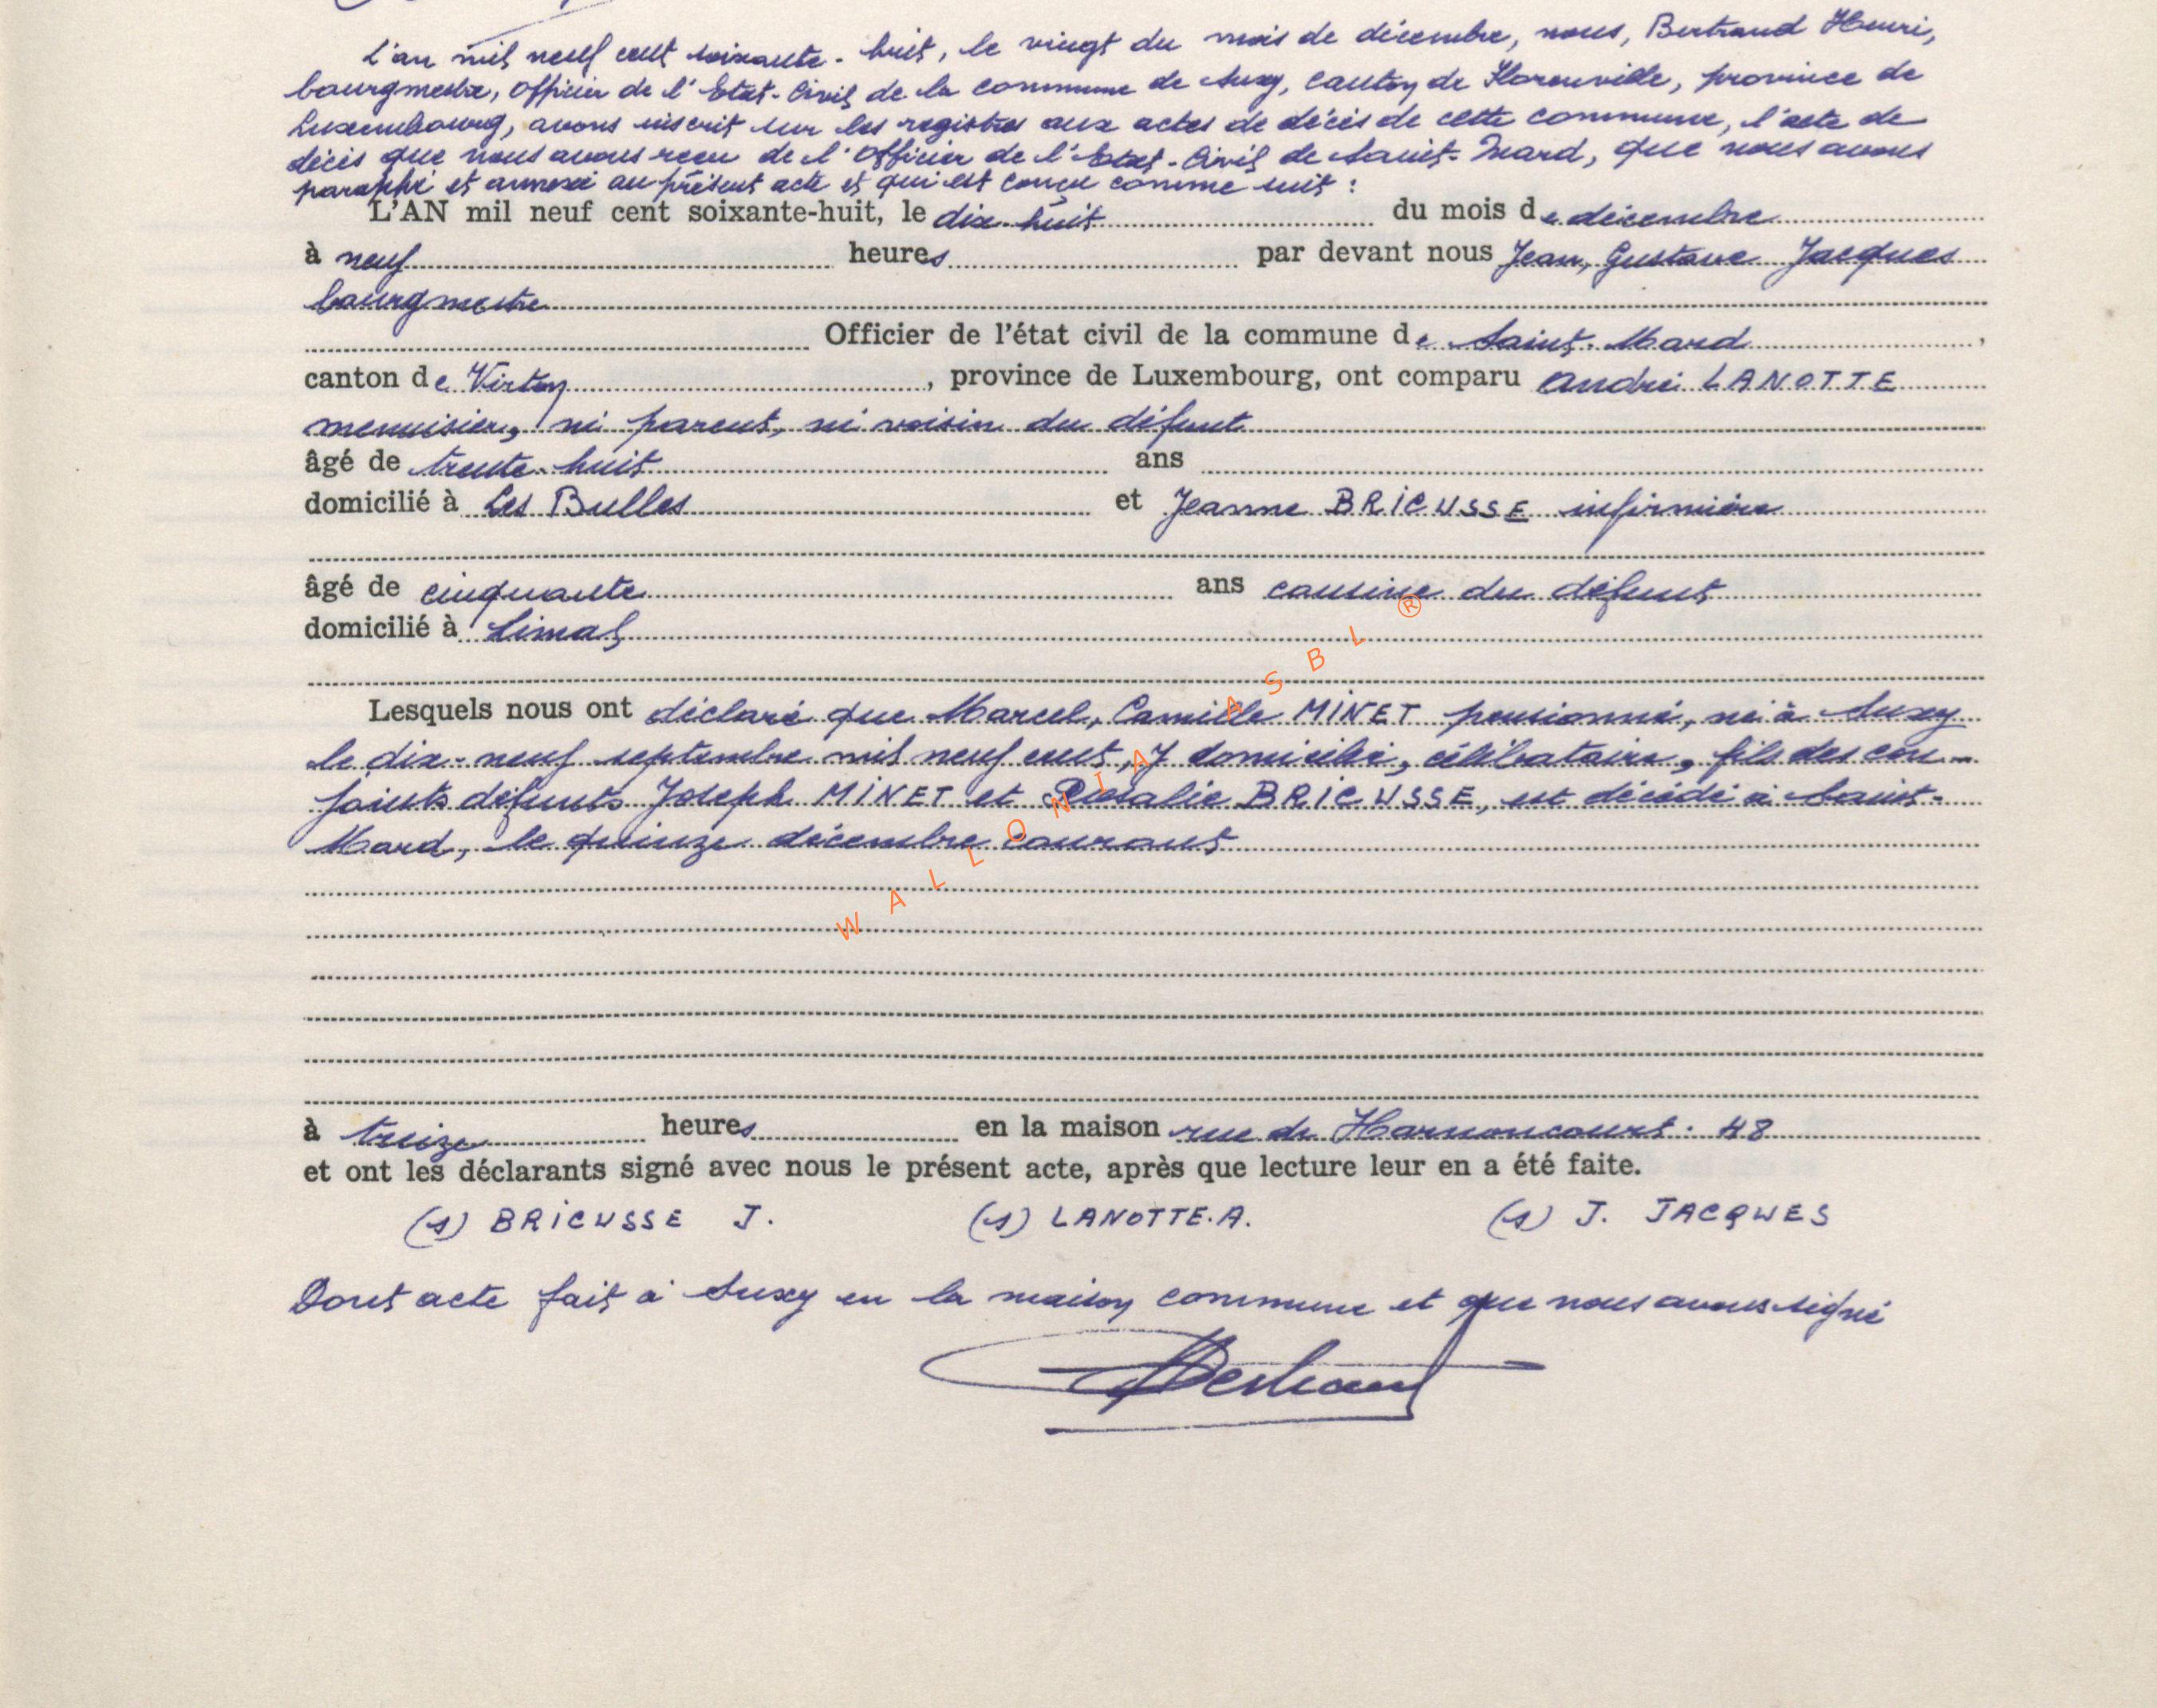 L'an mil neuf cent soixante-huit, le vingt du mois de décembre, nous, Bertrand Henri,
bourgmestre, officier de l'Etat-Civil de la commune de Suxy, canton de Florenville, province de
Luxembourg, avons inscrit sur les registres aux actes de décès de cette commune, l'acte de
décès que nous avons reçu de l'Officier de l'Etat-Civil de Saint-Mard, que nous avons
paraphé et annexé au présent acte et qui est conçu comme suit :
L'AN mil neuf cent soixante-huit, le dix-huit du mois de décembre
à neuf heures par devant nous Jean, Gustave Jacques
bourgmestre
Officier de l'état civil de la commune de Saint-Mard,
canton de Virton, province de Luxembourg, ont comparu André LANOTTE
menuisier, ni parent, ni voisin du défunt
âgé de trente-huit ans
domicilié à Les Bulles et Jeanne BRICUSSE infirmière
âgé de cinquante ans cousine du défunt
domicilié à Limal
Lesquels nous ont déclaré que Marcel, Camille MINET pensionné, né à Suxy
le dix-neuf septembre mil neuf cent, y domicilié, célibataire, fils des con-
joints défunts Joseph MINET et Rosalie BRICUSSE, est décédé à Saint-
Mard, le quinze décembre courant
à treize heures en la maison rue de Harnoncourt. 48
et ont les déclarants signé avec nous le présent acte, après que lecture leur en a été faite.
(s) BRICUSSE J. (s) LANOTTE.A. (s) J. JACQUES
Dont acte fait à Suxy en la maison commune et que nous avons signé
HBertrand
WALLONIA ASBL ®